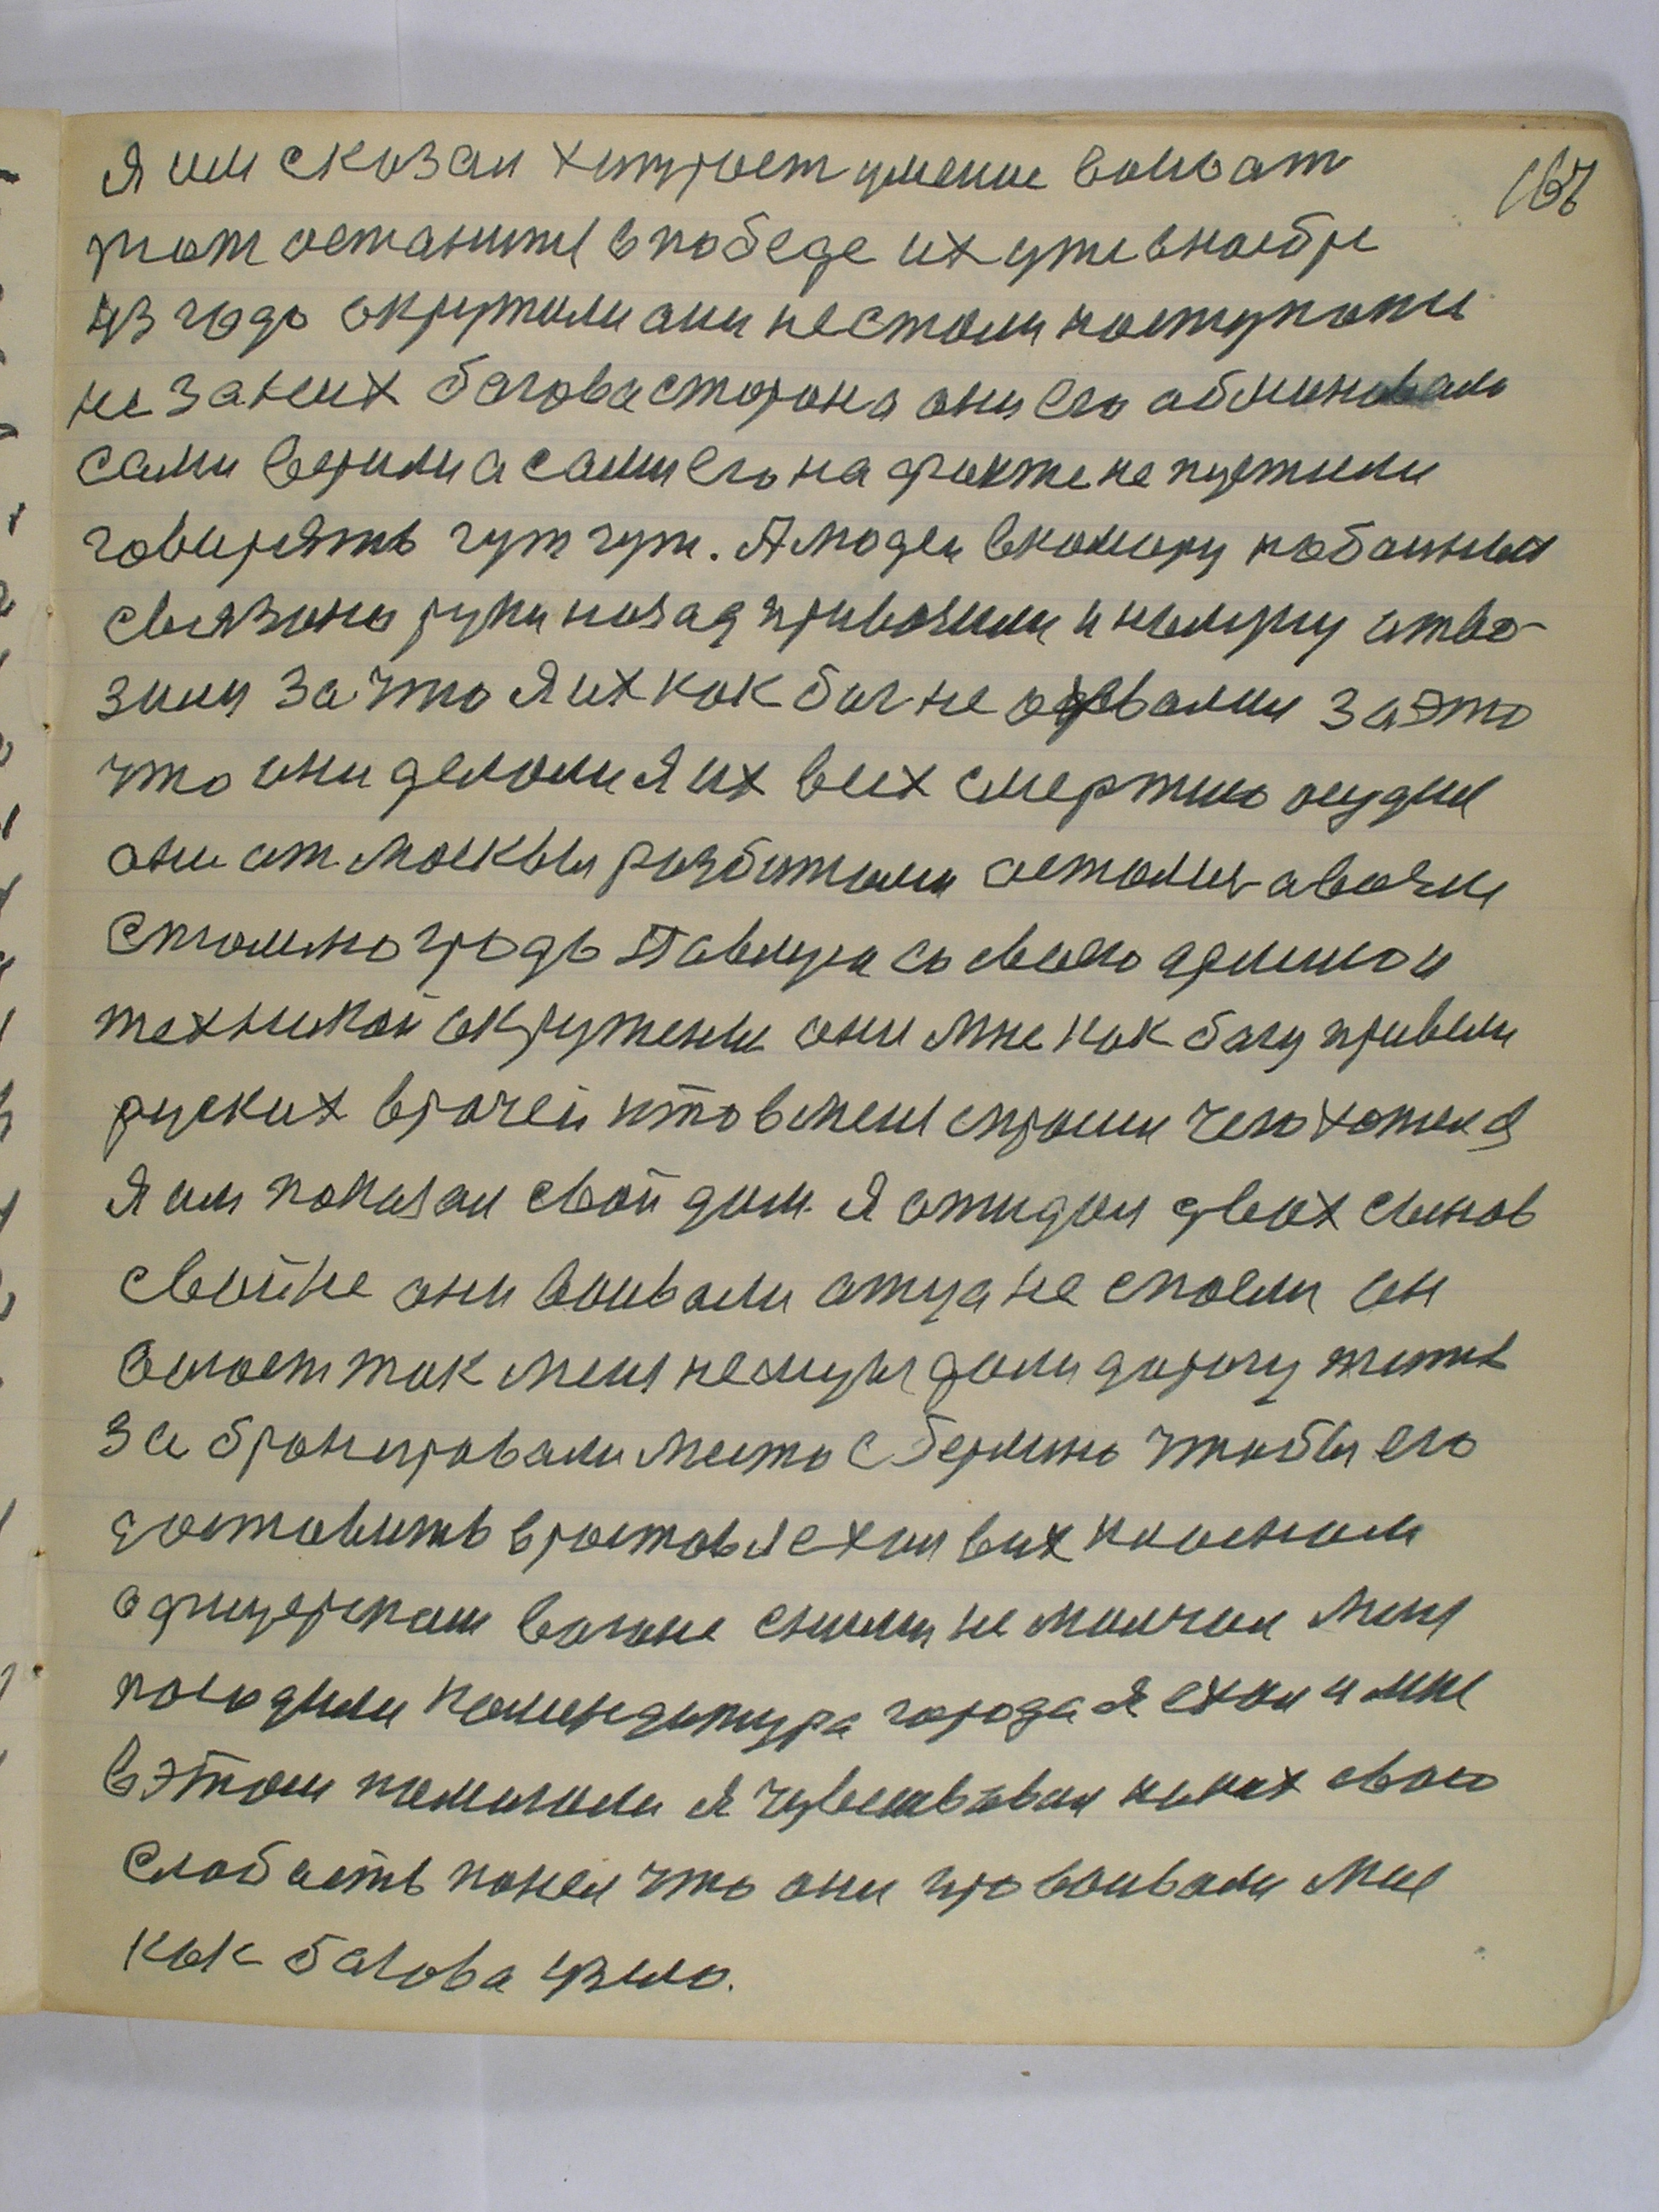 167
Я им сказал хитрост умение воиват
тот останится в победе их уже в наебре
43 года окружили ани не стали наступать
не за них багова сторона они его обминовали
сами верили а сами его на факте не пустили
говирять чут чут. А люди в камеру к
связано руки назад привозили и немцу атво-
зили за что я их как бог не одевалми за это
что они делали я их всих смертию осудил
они ат Москвы разбитами астались а возли
Сталинограда Павлуси со своею армиюи
техникой окружение они мне как богу привели
руских врачей кто в меня спросил чего хотел я
я им показал свой дом я ожидал двоих сынов
с войне они воивали отца не споели он
 так меня немцы дали дорогу жить
Забронировали место с Берлино чтобы его
доставить в ростов я ехал в их класном
афицерском вагоне с ними не молчал меня
посодили комендатура города я ехал и мне
в этом помогали я чувствовал в них свою
слабасть понел что они провоивали мне
как богова чрело.